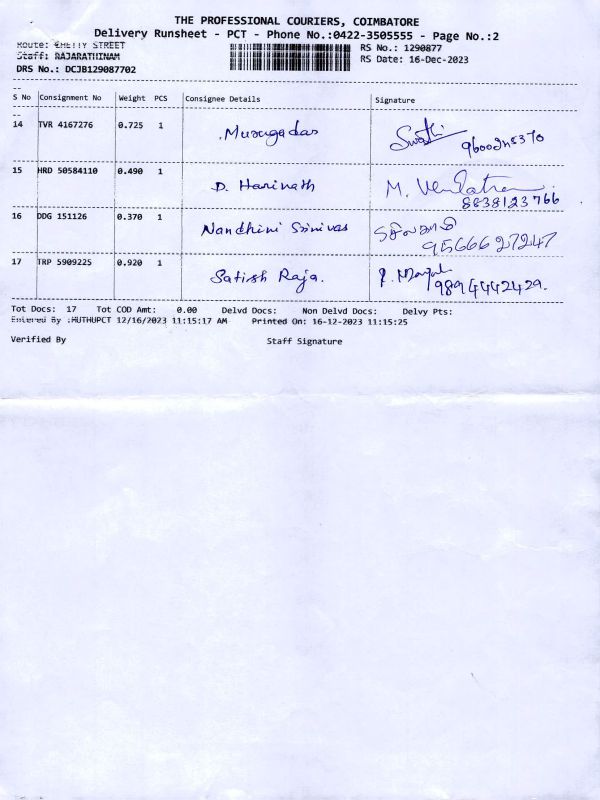 THE PROFESSIONAL COURIERS, COIMBATORE
Delivery Runsheet - PCT - Phone No.:0422-3505555 - Page No.:2
Route: CHETTY STREET
RS No.: 1290877
Staff: RAJARATHINAM
RS Date: 16-Dec-2023
DRS No.: DCJB129087702
S No Consignment No Weight PCS Consignee Details Signature
14 TVR 4167276 0.725 1 Murugadas Swathi
15 HRD 50584110 0.490 1 D. Harinath M.
8838123766
16 DDG 151126 0.370 1 Nandhini Srinivas
9566627247
17 TRP 5909225 0.920 1 Satish Raja.
9894442429.
Tot Docs: 17 Tot COD Amt: 0.00 Delvd Docs: Non Delvd Docs: Delvy Pts:
Entered By :HUTHUPCT 12/16/2023 11:15:17 AM Printed On: 16-12-2023 11:15:25
Verified By Staff Signature